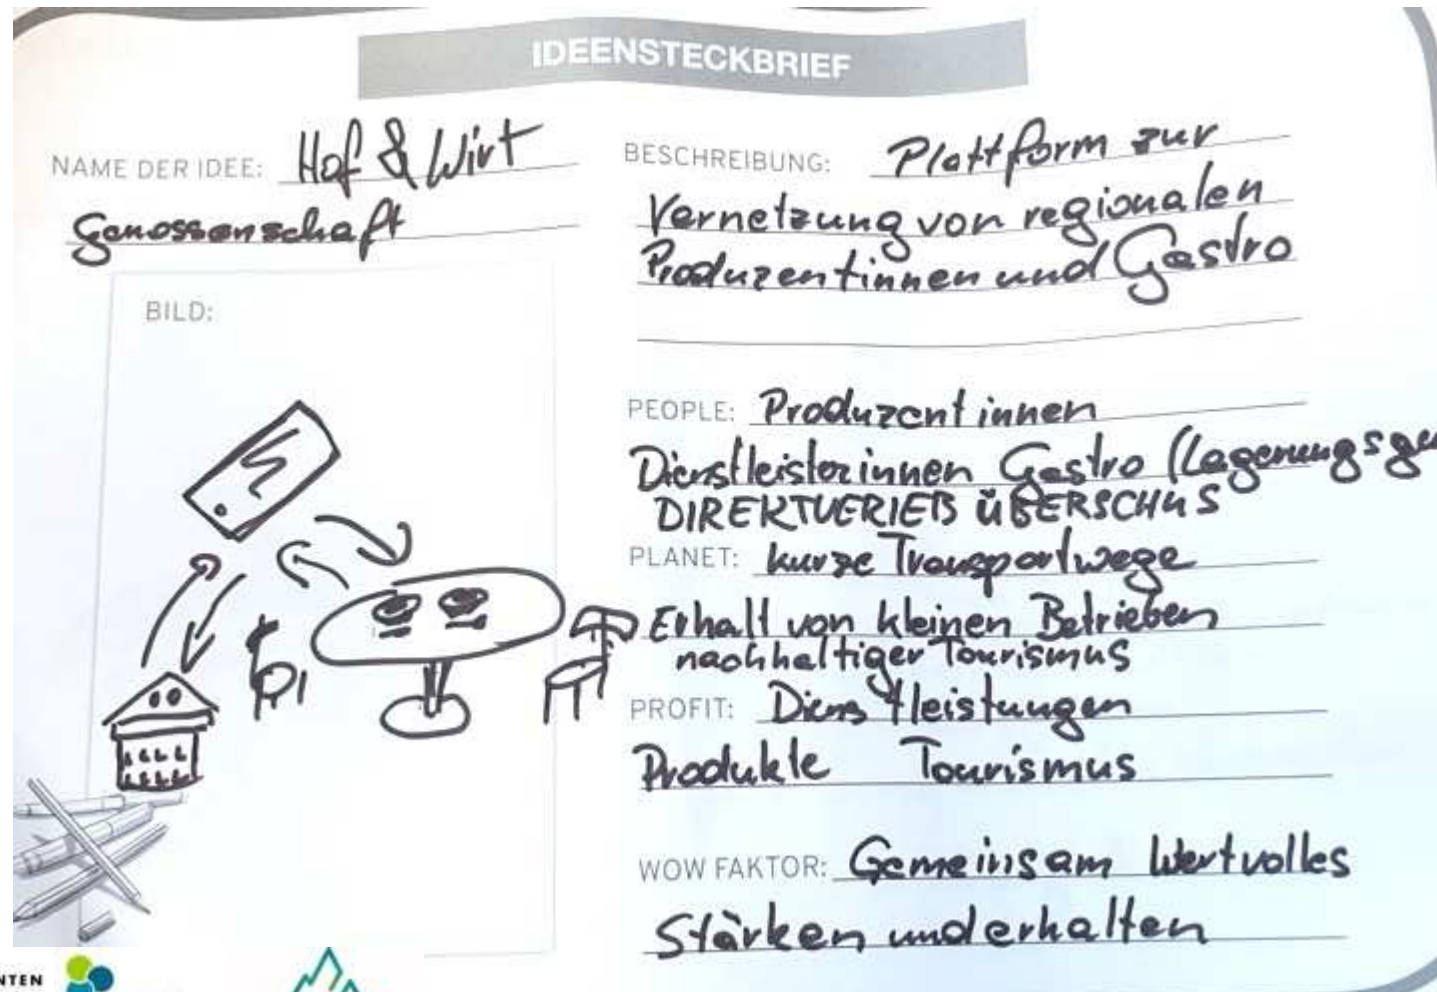 IDEENSTECKBRIEF
NAME DER IDEE: Hof & Wirt
Genossenschaft
BILD:
BESCHREIBUNG: Plattform zur
Vernetzung von regionalen
Produzentinnen und Gastro
PEOPLE: Produzentinnen
Dienstleisterinnen Gastro (Lagerungsge
DIREKTVERIEB ÜBERSCHUS
PLANET: kurze Transportwege
Erhalt von kleinen Betrieben
nachhaltiger Tourismus
PROFIT: Dienstleistungen
Produkte Tourismus
WOW FAKTOR: Gemeinsam Wertvolles
Stärken und erhalten
NTEN